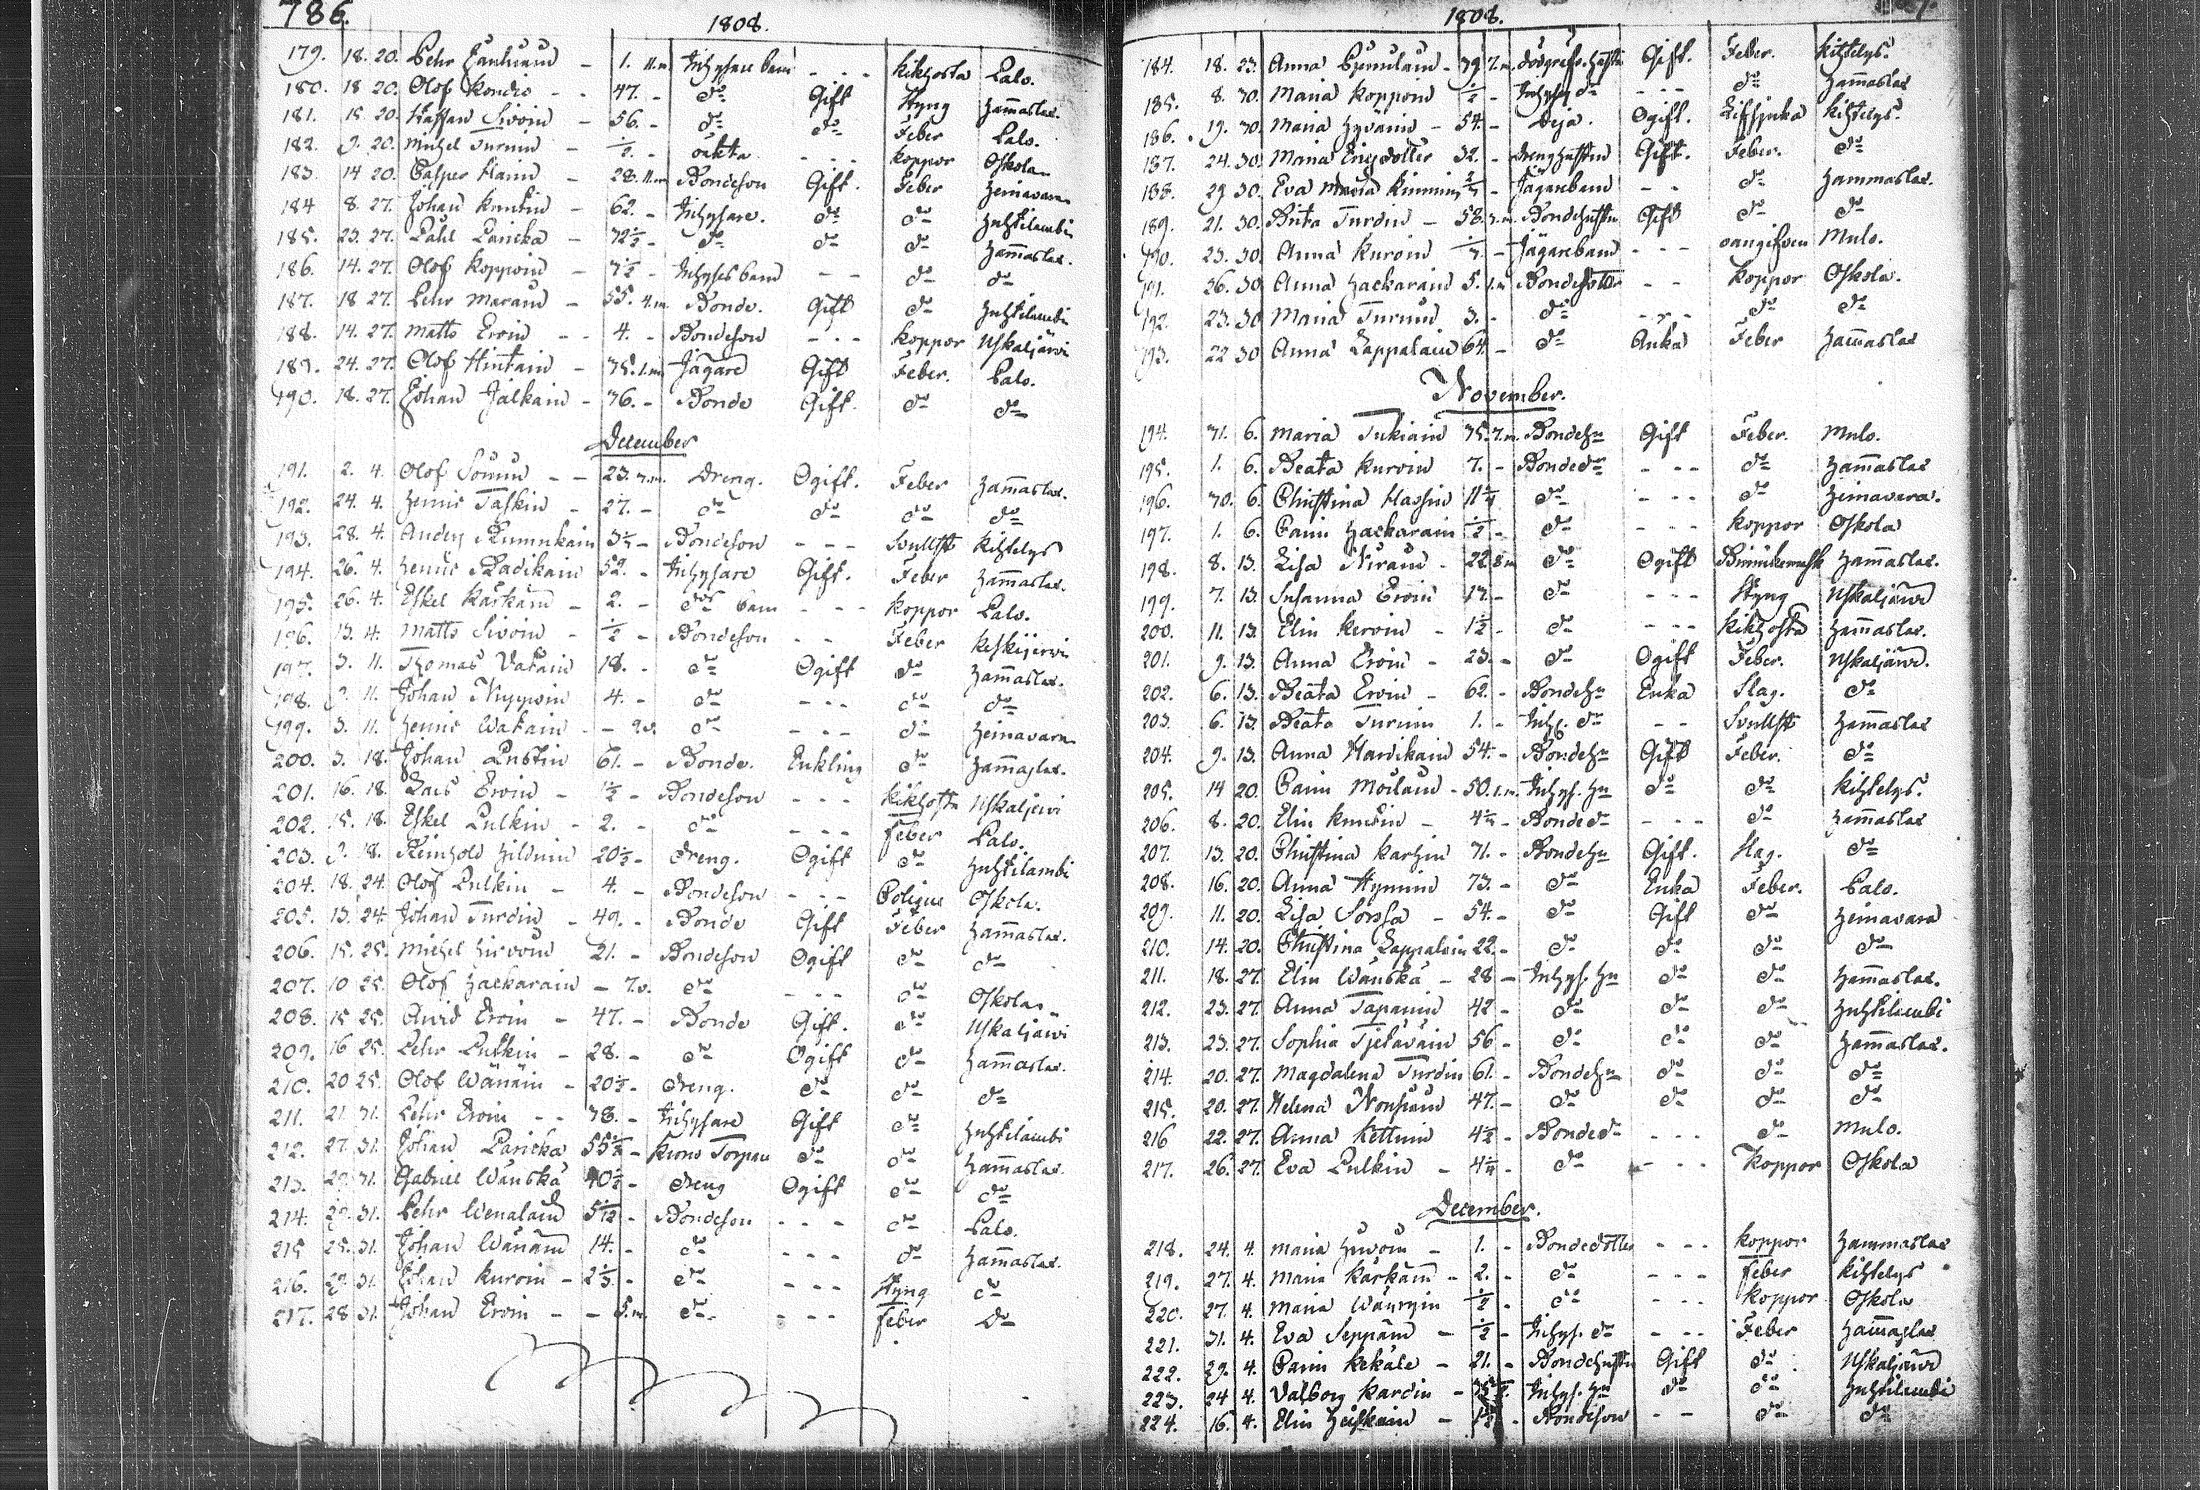 786.
1808.
179. 18. 20. Pehr - 1. 11.m Inhysare barn - - - Kikhosta Palo.
180. 18 20. Olof Kondie - - 47. - do Gift Styng Hammaslax.
181. 15. 20. Staffan Sivoin - 56. - do do Feber Palo.
182. 9. 20. Michel Turuin - 1/2. - oäkta - - - Koppor Oskola
183. 14 20. Casper Hain - 28. 11.m Bondeson Gift. Feber Heinavara
184 8. 27. Johan Knutin - 62. - Inhysare. do do Huhtilambi
185. 23. 27. Påhl Paricka - 72 1/2 - do do do Hammaslax.
186. 14. 27. Olof Koppoin - 7 1/2 - Inhyses barn - - do do
187. 18 27. Pehr Maraun - 55. 4.m Bonde. Gift do Huhtilambi
188. 14. 27. Matts Eroin - - 4. - Bondeson - - - Koppor Uskaljärvi
189. 24. 27. Olof Hintain - 75. 1.m Jägare Gift Feber. Palo.
190. 18. 27. Johan Jalkain - 76. - Bonde Gift. do do
December
191. 2. 4. Olof - - 23. 7.m. Dreng. Ogift. Feber Hammaslax.
192. 24. 4. Henric Taskin - 27. - do do do do
193. 28. 4. Anders Rumnkain 3 1/4 - Bondeson - - - Svullst Kihtelys
194. 26. 4. Henric Radikain 52. - Inhysare Gift. Feber Hammaslax.
195. 26. 4. Eskel Kärkäin - 2. - dos barn - - - Koppor Palo.
196. 13. 4. Matts Sivoin - 1/2 - Bondeson - - Feber Keskijervi
197. 3. 11. Thomas Vatain 18. - do Ogift do Hammaslax.
198. 9. 11. Johan Nyypoin 4. - do - - - do do
199. 3. 11. Henric Watain - - 2.v. do - - - do Heinavara
200. 3. 18. Johan Pustin 61. - Bonde. Enkling do Hammaslax.
201. 16. 18. Lars Eroin - 1 1/2 - Bondeson - - - Kikhosta Uskaljervi
202. 15. 18. Eskel Pulkin - 2. - do - - - Feber Palo.
203. 9. 18. Reinhold Hilduin 20 1/2 - Dreng. Ogift do Huhtilambi
204. 18. 24. Olof Pulkin - 4. - Bondeson - - - Colique Oskola.
205. 13. 24. Johan Turdin - 49. - Bonde Gift Feber Hammaslax.
206. 15. 25. Michel Hirvoin 21. - Bondeson Ogift do do
207. 10 25. Olof Hackarain - 7.v. do - - - do Oskola.
208. 15 25. Avid Eroin - 47. - Bonde Gift. do Uskaljärvi
209. 16 25. Pehr Pulkin - 28. - do Ogift do Hammaslax.
210. 20 25. Olof Wänäin - 20 1/2 - dreng. do do do
211. 21. 31. Pehr Eroin - - 38. - Inhysare Gift do Huhtilambi
212. 27. 31. Johan Paricka 55 1/2 - Krono Torpare do do Hammaslax.
213. 29. 31. Gabriel Wänskä 40 1/2 - dreng Ogift do do
214. 29. 31. Pehr Wenalain 5/12 - Bondeson - - - do Palo.
215 25. 31. Johan Wänäin 14. - do - - - do Hammaslax.
216. 29. 31. Johan Kuroin - 2 1/3. - do - - - Styng do
217. 28 31. Johan Eroin - - 5.m. do - - - Feber do
1808.
184. 18. 23. Anna - 39 7.m. Gift. Feber. Kihtelys.
185. 8. 30. Maria Koppoin 1/2 - Inhyses do - - - do Hammaslax
186. 19. 30. Maria Hyvärin - 54. - Deja. Ogift. Kihtelys.
187. 24. 30. Maria Ericsdotter 32. - Drenghustru Gift. Feber. do
188. 29 30. Eva Maria Kinnuin - Jägarebarn - - do Hammaslax.
189. 21. 30. Brita Turdin - 58. 3.m. Bondehustru Gift do do
190. 23. 30. Anna Kuroin - Jägarebarn - - - oangifven Mulo.
191. 26. 30 Anna Hackarain 5. 1.m Bondedotter - - Koppor Oskola.
192. 23. 30 Maria Turuin 3. - do - - - do do
193. 22 30 Anna Lappalain 64. - do Änka Feber Hammaslax
November.
194. 31. 6. Maria Tukiain 75. 7.m. Bondehu Gift Feber. Mulo.
195. 1. 6. Beata Kurvin 7. - Bondedr - - - do Hammaslax
196. 30. 6. Christina Hassin 11 1/4 do - - - do Heinavara.
197. 1. 6. Carin Hackarain 1/2 - do - - - Koppor Oskola
198. 8. 13. Lisa Niraun - 22. 8m do Ogift Hammaslax.
199. 7. 13. Susanna Eroin 17. - do - - - Styng Uskaljärvi
200. 11. 13. Elin Kervin - 1 1/2 - do - - - Kikhosta Hammaslax.
201. 9. 13. Anna Eroin - 23. - do Ogift Feber. Uskaljärvi.
202. 6. 13. Beata Eroin - 62. - Bondehu Enka Slag. do
203. 6. 13. Beata Turuin 1. - Inhy. dr - - Svullst Hammaslax
204. 9. 13. Anna Harikain 54. - Bondehu Gift Feber. do
205. 14 20. Carin Moilain - 50. 1.m. Inhys. hu do do Kihtelys.
206. 8. 20. Elin Knutin - 4 1/4 - Bondedr - - - do Hammaslax
207. 13. 20. Christina Karhin 71. - Bondehu Gift. Slag. do
208. 16. 20. Anna Hyminin 73. - do Enka Feber. Palo.
209. 11. 20. Lisa Sorsa - 54. - do Gift do Heinavara
210. 14. 20. Christina Lappalain 22. - do do do do
211. 18. 27. Elin Wänskä - 28 - Inhys. hu do do Hammaslax.
212. 23. 27. Anna Tapanin 42 - do do do Huhtilambi
213. 23. 27. Sophia Tjetäväin 56 - do do do Hammaslax.
214. 20. 27. Magdalena Turdin 61. - Bondehu do do do
215. 20. 27. Helena Nousiain 47. - do do do do
216 22. 27. Anna Kettuin 4 1/2 - Bondedr - - - do Mulo.
217. 26. 27. Eva Pulkin - 4 1/4 - do - - - Koppor Oskola
December.
218. 24. 4. Maria Hirvoin - 1. - Bondedotter - - - Koppor Hammaslax
219. 27. 4. Maria Kärkäin - 2. - do - - - Feber Kihtelys
220. 27. 4. Maria 1/2 - do - - - Koppor Oskola
221. 31. 4. Eva Seppäin - 1/2 - Inhys. dr - - - Feber Hammaslax
222. 29. 4. Carin Kekäle - 21. - Bondehustru Gift do Uskaljärvi
223. 24 4. Valborg Kardin - Inhys. hu do do Huhtilambi
224. 16. 4. Elin Heiskain - - Bondeson - - do do